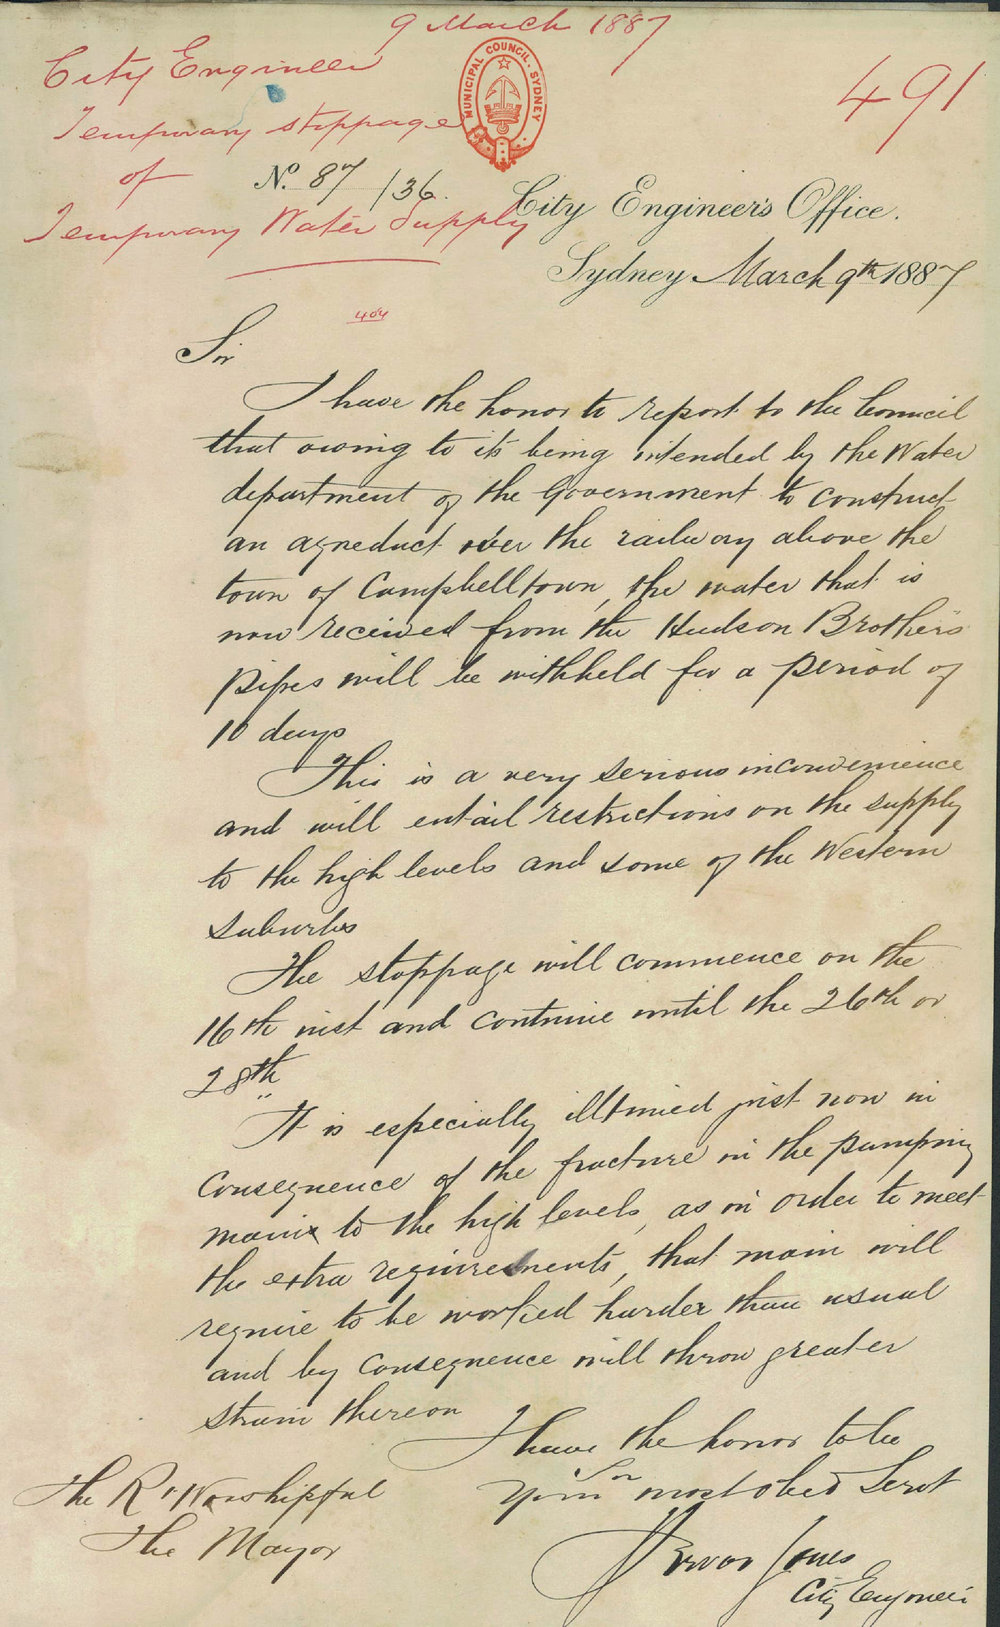 9 March 1887
City Engineer
491
MUNICIPAL COUNCIL. SYDNEY
Temporary stoppage
of
No. 87/136.
City Engineer's Office.
Temporary Water Supply
Sydney March 9th 1887
404
Sir
I have the honor to report to the Council
that owing to its being intended by the Water
department of the Government to construct
an aqueduct over the railway above the
town of Campbelltown, the water that is
now received from the Hudson Brothers
pipes will be withheld for a period of
10 days
This is a very serious inconvenience
and will entail restrictions on the supply
to the high levels and some of the Western
suburbs
The stoppage will commence on the
16th inst and continue until the 26th or
28th
It is especially illtimed just now in
consequence of the fracture in the pumping
main to the high levels, as in order to meet
the extra requirements, that main will
require to be worked harder than usual
and by consequence will throw greater
strain thereon
I have the honor to be
Sir
Your most obed Servt
The Rt Worshipful
The Mayor
Trevor Jones
City Engineer